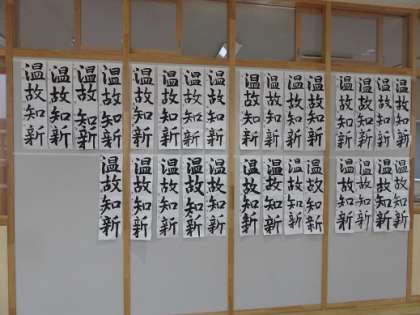 温故知新
温故知新
温故知新
温故知新
温故知新
温故知新
温故知新
温故知新
温故知新
温故知新
温故知新
温故知新
温故知新
温故知新
温故知新
温故知新
温故知新
温故知新
温故知新
温故知新
温故知新
温故知新
温故知新
温故知新
温故知新
温故知新
温故知新
温故知新
温故知新